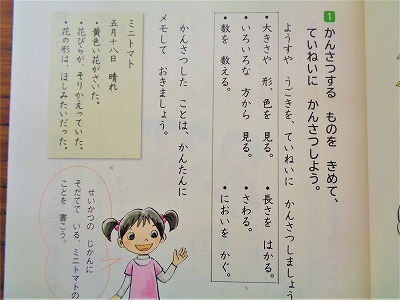 1 かんさつする ものを きめて、
ていねいに かんさつしよう。
ようすや うごきを、ていねいに かんさつしましょう
・大きさや 形、色を 見る。
・いろいろな 方から 見る。
・数を 数える。
・長さを はかる。
・さわる。
・においを かぐ。
かんさつした ことは、かんたんに
メモして おきましょう。
ミニトマト
五月十八日 晴れ
・黄色い花がさいた。
・花びらが、そりかえっていた。
・花の形は、ほしみたいだった。
せいかつの じかんに
そだてて いる、ミニトマトの
ことを 書こう。